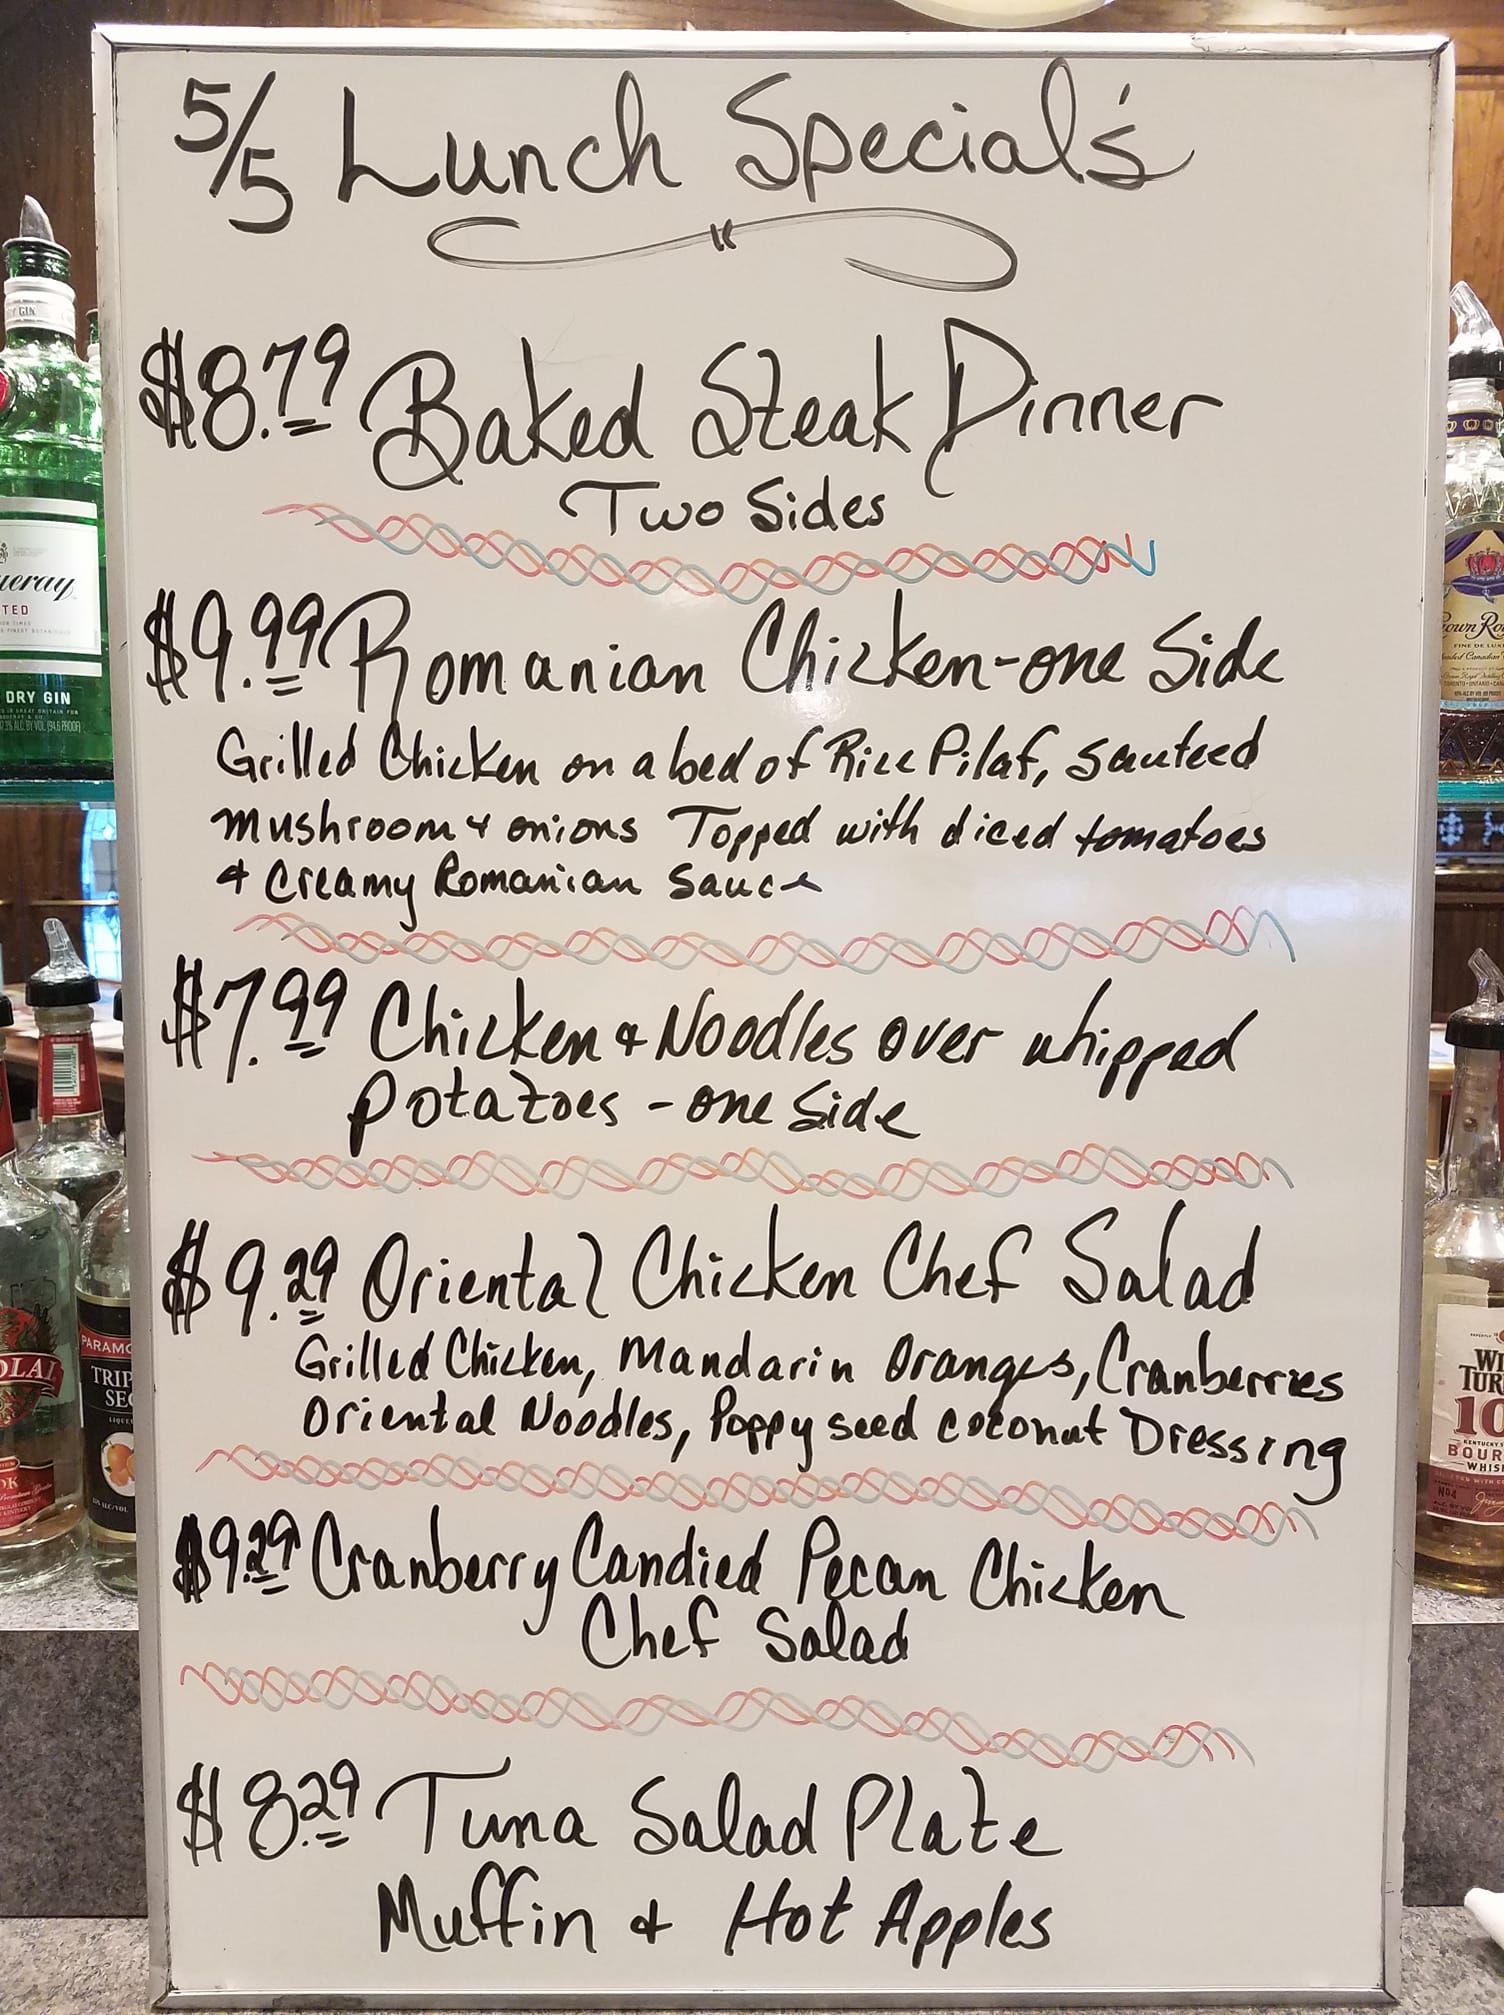 5/5 Lunch Special's
$8.79 Baked Steak Dinner
Two Sides
$9.99 Romanian Chicken-one Side
Grilled Chicken on a bed of Rice Pilaf, sauteed
mushroom & onions Topped with diced tomatoes
& Creamy Romanian Sauce
$7.99 Chicken & Noodles over whipped
potatoes - one Side
$9.29 Oriental Chicken Chef Salad
Grilled Chicken, Mandarin Oranges, Cranberries
Oriental Noodles, Poppy seed coconut Dressing
$9.29 Cranberry Candied Pecan Chicken
Chef Salad
$8.29 Tuna Salad Plate
Muffin & Hot Apples
GIN
DRY GIN
FINE DE LUXE
BOUR
WHIS